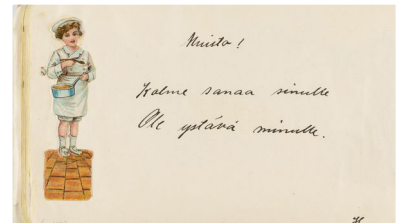 Muista!
Kolme sanaa sinulle
Ole ystävä minulle.